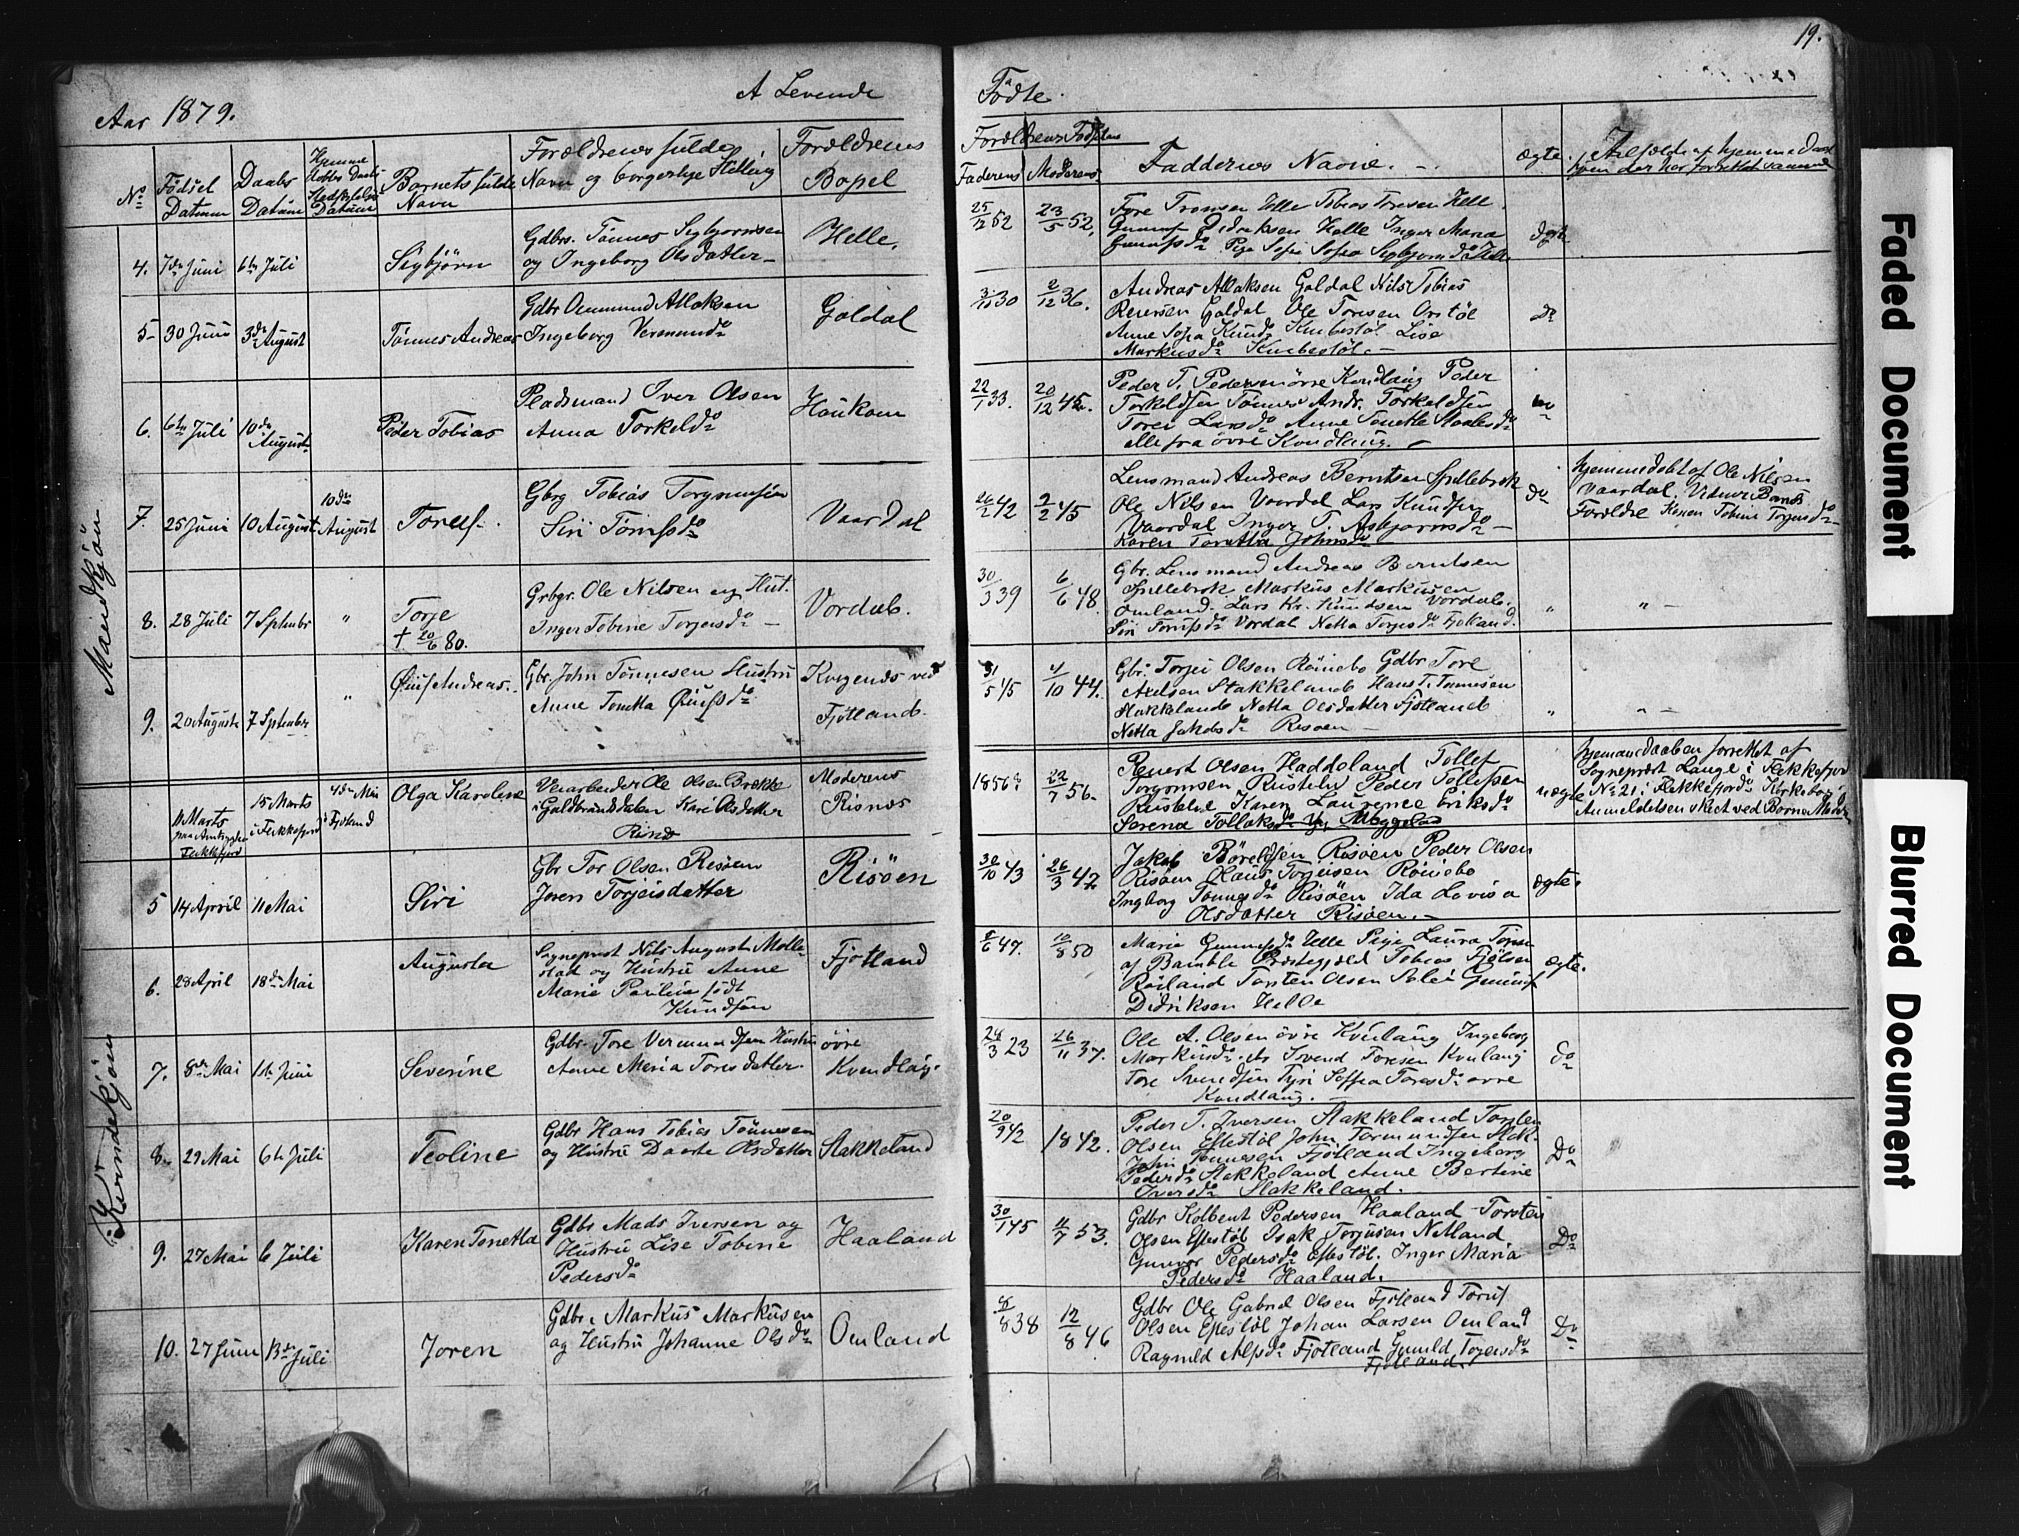 19.
Aar 1879.
A Levende
Fødte.
No
Fødsel Datum
Daabs Datum
Hjemme Datum
Barnets fulde Navn
Forældrenes fulde Navn og borgerlige Stilling
Forældrenes Bopel
Faderens
Moderens
Faddernes Navne.
ægte.
Mandkjön
4. 7de Juni 6te Juli
Sigbjörn
Gdbr. Tönnes Sigbjørnsen
og Ingeborg Olsdatter
Helle.
25/12 52
23/5 52.
Tore Tronsen Helle Tobias Toresen Helle.
Gunuf Didriksen Helle Inger Maria
5 30 Juni 3die August
Tönnes Andreas
Gdbr Ommund Atlaksen
Ingeborg Vermundsdo
Galdal
2/12 36.
Andreas Atlaksen Galdal Nils Tobias
Reiersen Galdal Ole Toresen
Anna Sofia Knudsdo Knibestöl Lise
Markusdo Knibestöl.
do
6. 6te Juli 10de August
Peder Tobias
Pladsmand Iver Olsen
Anna Torkeldsdo
Haukom
22/1 33.
20/12 45.
Peder T. Pedersen övre Kvndlaug Peder
Torkeldsen Tönnes Andr. Torkeldsen
Toren Larsdo Anne Tonette
alle fra övre Kvndlaug.
do
7. 25 Juni 10 August 10de August
Toruf
Gbrg Tobias
Siri Torufsdo
Vaardal
26/2 42
2/2 45
Lensmand Andreas Berntsen Spillebrok
Ole Nilsen Vaardal Lars Knudsen
Vaardal Inger T. Asbjørnsdo
Karen Tonetta Johnsdo
do
hjemmedöbt af Ole Nilsen
Vaardal. Vidner Barnets
Forældre Tobine Torjersdo
8. 28 Juli 7 Septembr "
Torje
† 20/6 80.
Grbgr. Ole Nilsen og Hust.
Inger Tobine Torjersdo
Vordal.
30/3 39
6/6 48.
Gbr. Lensmand Andreas Berntsen
Spillebrok Markus Markusen
Omland. Lars Kr. Knudsen Vordal.
Siri Torufsdo Vordal Netta Torjersdo Fjotland.
"
9. 20 Auguste 7 Septembr "
Öiuf Andreas.
Gbr. John Tönnesen Hustru
Anne Tonetta Öiufsdo
Kvegends ved
Fjotland.
31/5 45
4/10 44.
Gbr. Torjei Olsen Röinebo Gdbr Tore
Axelsen Stakkeland Hans T. Tönnesen
Stakkeland Netta Olsdatter Fjotland
Netta Jakobsdo Risøen
"
Kvindekjön
11 Marts
15 Marts
i Flekkefjord
4de Mai
i Fjotland
Olga Karoline
Veiarbeider Ole Olsen Brække
i Guldbrandsdalen Kari Olsdatter
Risnæs
Moderens
Risnæs
1856?
22/7 56.
Reiert Olsen Haddeland Tollef
Rusteli Peder Tollefsen
Rusteli Karen Laurence Eriksdo
Serena Tollaksdo
uægte
hjemmedaaben forrettet af
Sognepræst Lange i Flekkefjord
No 21 i Flekkefjords Kirkebog
Anmeldelsen skeet ved Barnets Moder
5 14 April 11 Mai
Siri
Gbr Tor Olsen Risøen
Joren Torjeisdatter
Risöen
30/10 43
26/3 47
Jakob Börufsen Risøen Peder Olsen
Risøen Hans Torjeisen Röinebo
Ingborg Tönnesdo Risöen Ida Lovisa
Olsdatter Risøen.
ægte.
6. 28 April 18de Mai
Augusta
Sogneprest Nils August Molle-
stad og Hustru Anne
Marie Pauline født
Knudsen
Fjotland
10/8 50
Marie Gunufsdo Helle Pige Laura
af Bamble Præstegjeld Tobias
Röiland Torsten Olsen
Didriksen Helle
ægte.
7. 8de Mai 1ste Juni
Severine
Gdbr. Tore Vermundsen Hustru
Anne Maria Toresdatter
övre
Kvendlög.
28/3 23
26/11 37.
Ole A. Olsen övre Kvnlaug Ingeborg
Markusdo Svend Toresen Kvnlaug
Tore Svendsen Siri Soffia Toresdo øvre
Kvndlaug.
do
8. 29 Mai 6te Juli
Teoline
Gdbr Hans Tobias Tönnesen
og Hustru Daarte Olsdatter
Stakkeland
20/9 42
1842.
Peder T. Iversen Stakkeland Torsten
Olsen Eftestöl John
John Tönnesen Fjotland Ingeborg
Pedersdo Stakkeland Anne Bertine
Iversdo Stakkeland.
Do
9. 27 Mai 6 Juli
Karen Tonetta
Gdbr Mads Iversen og
Hustru Lise Tobine
Pedersdo
Haaland
30/1 45
11/7 53.
Gdbr Kolbent Pedersen Haaland Torsten
Olsen Eftestöl Isak Torjusen Netland
Gunvor Pedersdo Eftestöl. Inger Maria
Pedersdo Haaland.
Do
10. 27 Juni 13de Juli
Joren
Gdbr. Markus Markusen
og Hustru Johanne Olsdo
Omland
8/8 38
12/8 46
Gdbr Ole Gabriel Olsen Fjotland Toruf
Olsen Eftestöl Johan Larsen Omland
Ragnild Alfsdo Fjotland Gunild Torjersdo
Fjotland.
Do
Faded Document
Blurred Document